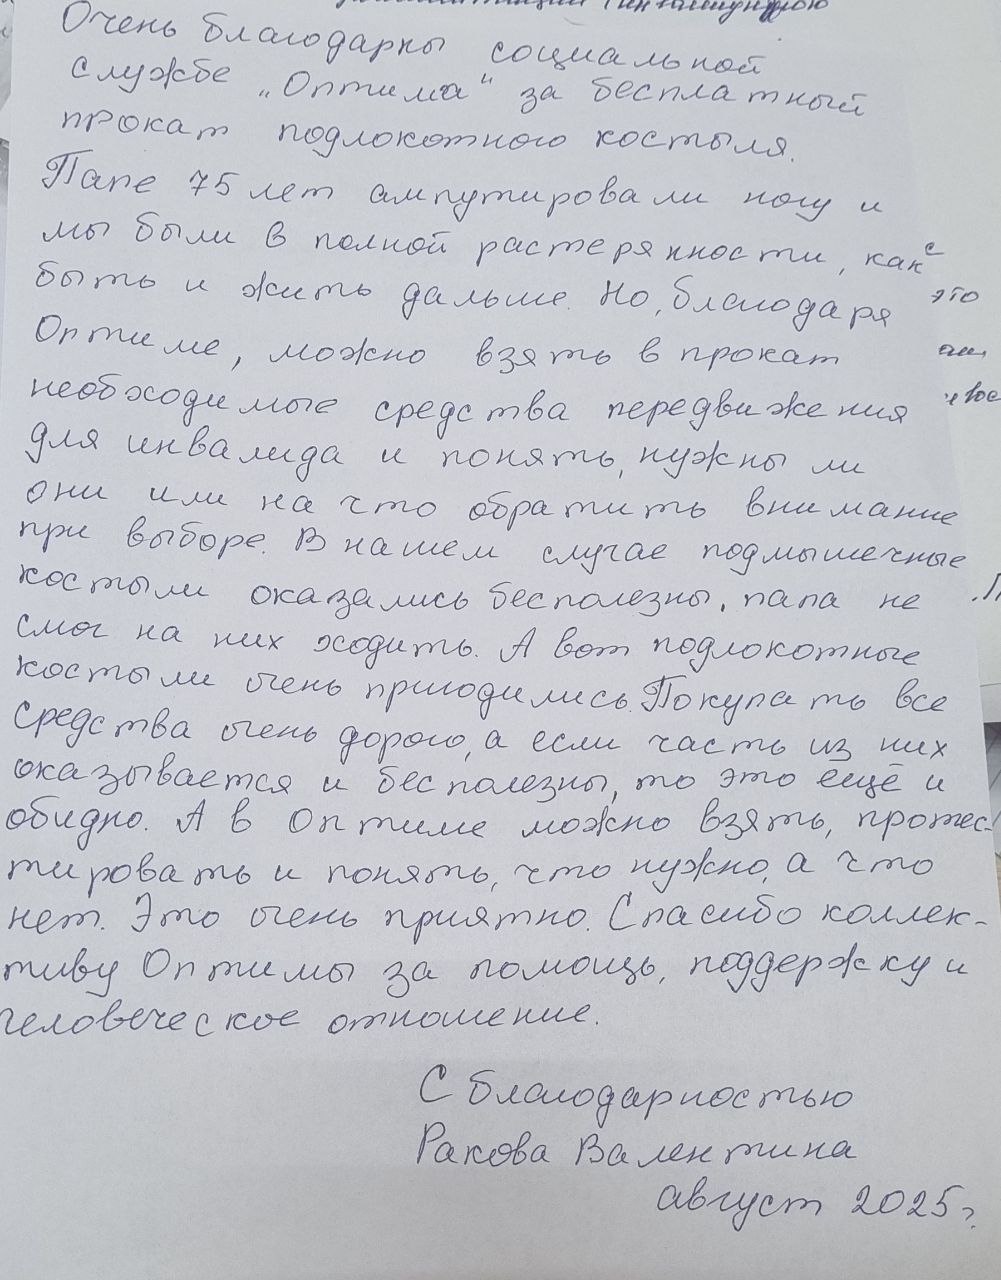 Очень благодарны социальной
службе „Оптима“ за бесплатный
прокат подлокотного костыля.
Папе 75 лет ампутировали ногу и
мы были в полной растерянности, как с
быть и жить дальше. Но, благодаря это
Оптиме, можно взять в прокат
необходимые средства передвижения
для инвалида и понять, нужны ли
они или на что обратить внимание
при выборе. В нашем случае подмышечные
костыли оказались бесполезны, папа не
смог на них ходить. А вот подлокотные
костыли очень пригодились. Покупать все
средства очень дорого, а если часть из них
оказывается и бесполезны, то это ещё и
обидно. А в Оптиме можно взять, протес-
тировать и понять, что нужно, а что
нет. Это очень приятно. Спасибо коллек-
тиву Оптимы за помощь, поддержку и
человеческое отношение.
С благодарностью
Ракова Валентина
август 2025г.